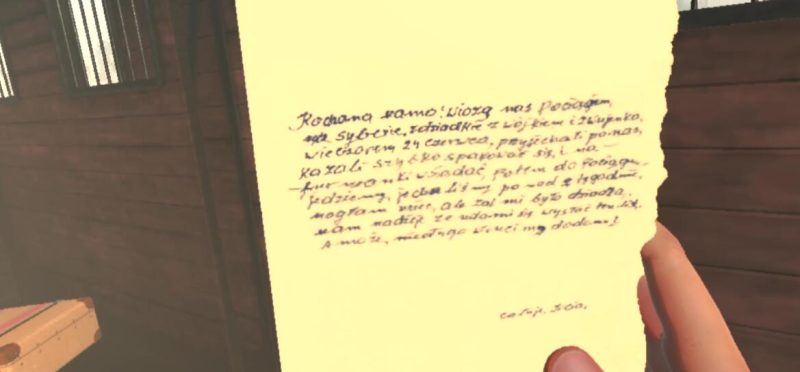 Kochana mamo! Wiozą nas pociągiem,
na Syberię, z dziadkiem z wójkiem i z wujenką,
wieczorem 24 czerwca, przyjechali po nas,
kazali szybko spakować się, i na
furmanki wsadać, potem do pociągu.
jedziemy, jechaliśmy ponad 2 tygodnie,
ale żal mi było dziadzia.
mam nadzieję że uda mi się wysłać ten list.
A może, niedługo wrócimy do domu!
całuję.